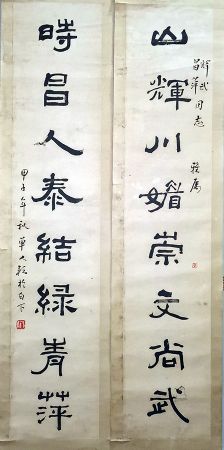 輝武
昌萍同志 雅属
山輝川媚崇文尚武
時昌人泰結緑青萍
甲子年秋單人耘於白下